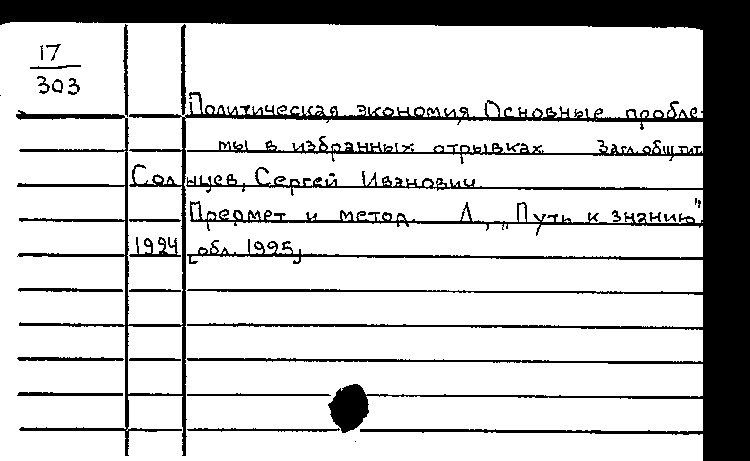 17
303
Политическая экономия. Основные пробле-
мы в избранных отрывках Загл. общ. тит.
Солнцев, Сергей Иванович.
Предмет и метод. Л., „Путь к знанию",
1924 [обл. 1925]